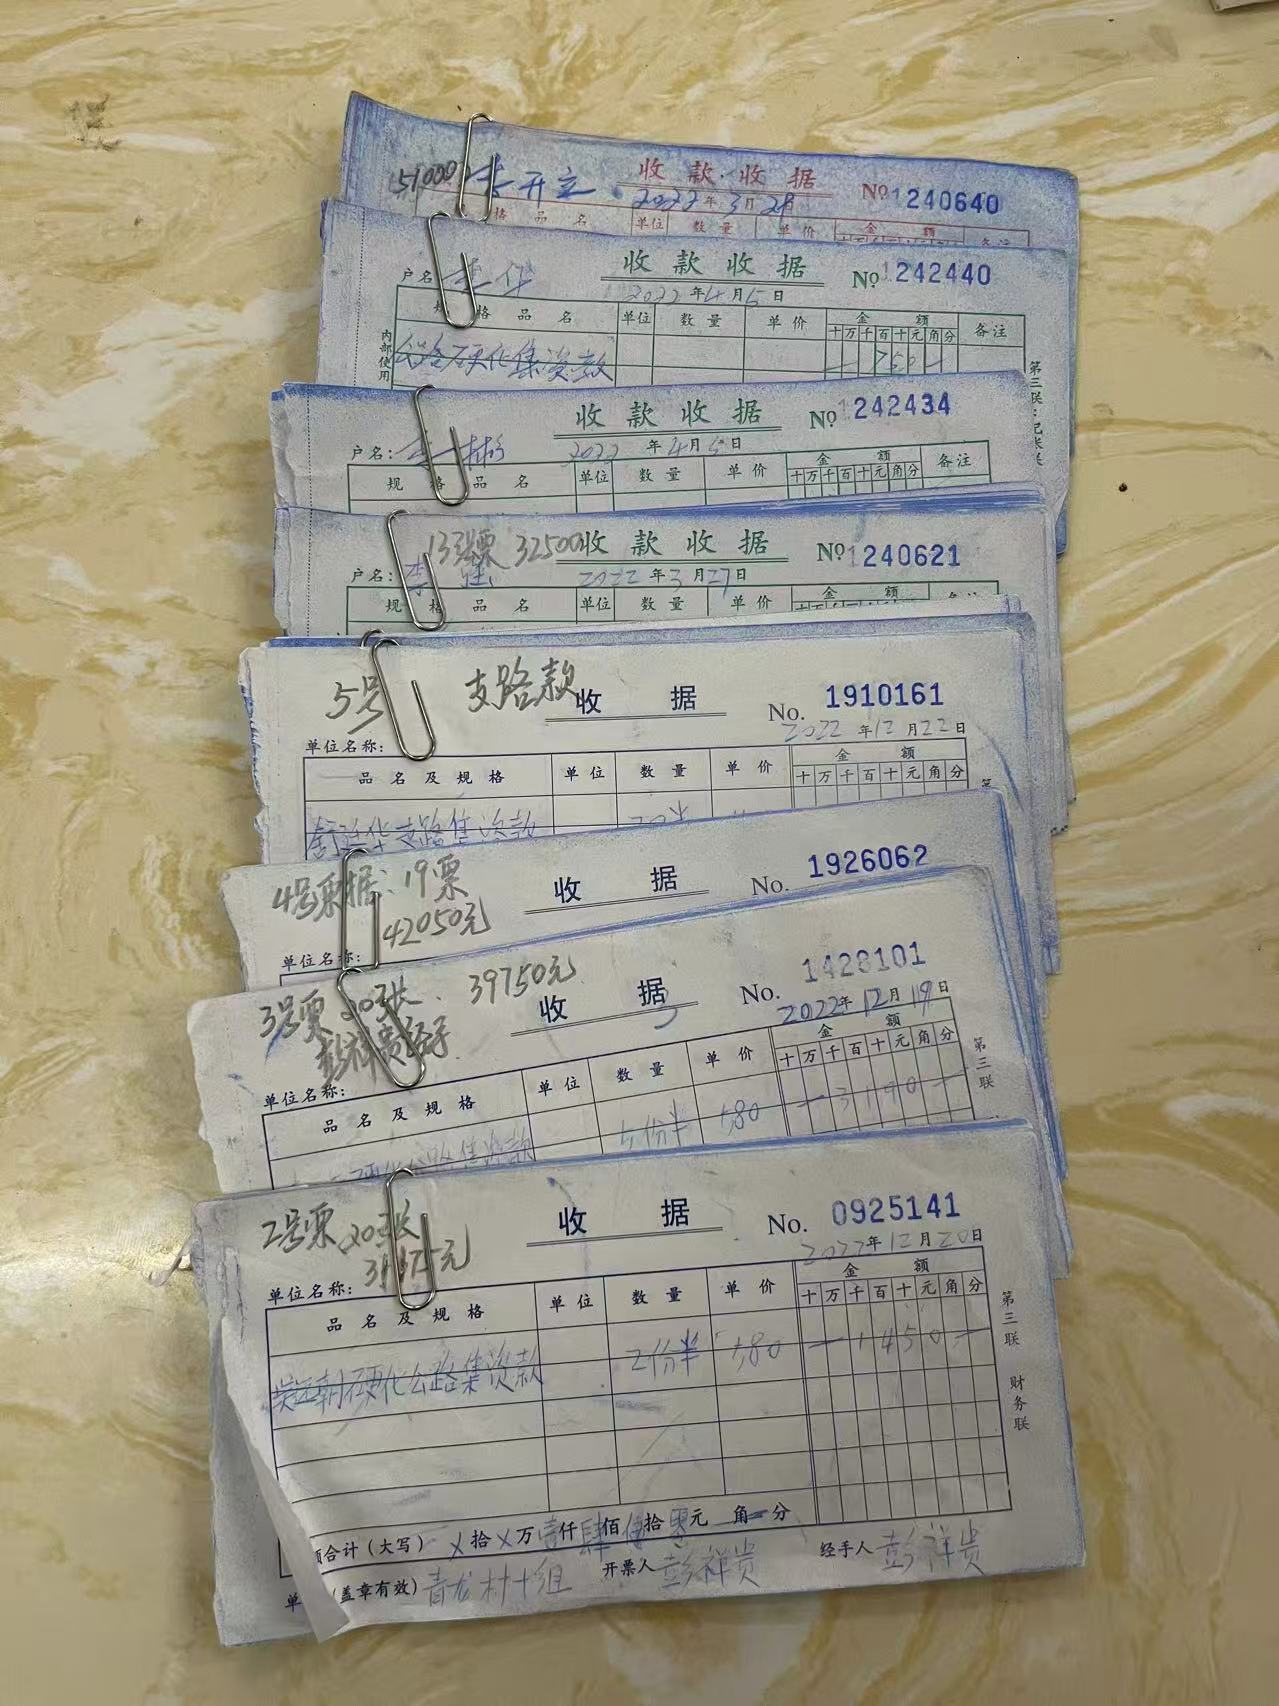 51000 李开立 收款收据 №1240640
2022年3月28
格 品 名 单位 数量 单价 金额 备注
十万千百十元角分
收款收据 №1242440
户名 李华 2022年4月5日
规格品名 单位 数量 单价 金额 备注
十万千百十元角分
内部使用
公路硬化集资款 750
第三联:记账联
收款收据 №1242434
户名: 彬 2022年4月5日
规格品名 单位 数量 单价 金额 备注
十万千百十元角分
13张票 32500 收款收据 №1240621
户名: 李 2022年3月27日
规格品名 单位 数量 单价 金额 备注
十万千百十元角分
5号 支路款 收据 No. 1910161
2022年12月22日
单位名称:
品名及规格 单位 数量 单价 金额
十万千百十元角分
华支路集资款 20半
4号票据:19票 收据 No. 1926062
42050元
单位名称:
3号票 20张 39750元 收据 No. 1428101
彭祥贵经手 2022年12月19日
单位名称:
品名及规格 单位 数量 单价 金额
十万千百十元角分
硬化公路集资款 5份半 580 3190
第三联
2号票 20张 收据 No. 0925141
元 2022年12月20日
单位名称:
品名及规格 单位 数量 单价 金额
十万千百十元角分
朝硬化公路集资款 2份半 580 1450
第三联 财务联
合计(大写) ㄨ拾ㄨ万壹仟肆佰伍拾零元 角 分
单 (盖章有效) 青龙村十组 开票人 彭祥贵 经手人 彭祥贵